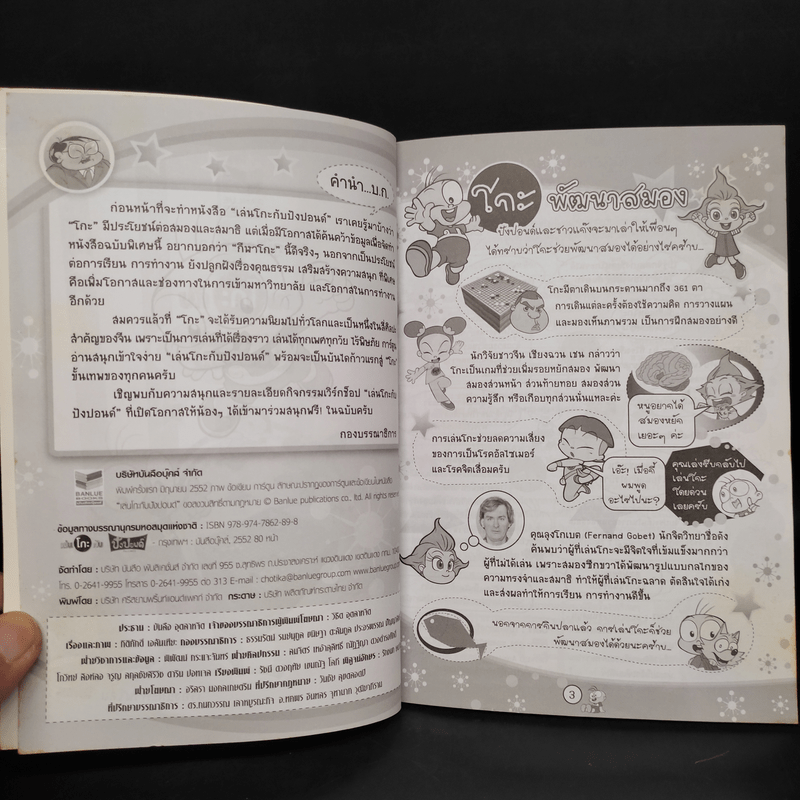 คำนำ...บ.ก.
ก่อนหน้าที่จะทำหนังสือ "เล่นโกะกับปังปอนด์" เราเคยรู้มาบ้างว่า
"โกะ" มีประโยชน์ต่อสมองและสมาธิ แต่เมื่อมีโอกาสได้ค้นคว้าข้อมูลเพื่อจัดทำ
หนังสือฉบับพิเศษนี้ อยากบอกว่า "กีฬาโกะ" นี้ดีจริงๆ นอกจากเป็นประโยชน์
ต่อการเรียน การทำงาน ยังปลูกฝังเรื่องคุณธรรม เสริมสร้างความสนุก ที่พิเศษ
คือเพิ่มโอกาสและช่องทางในการเข้ามหาวิทยาลัย และโอกาสในการทำงาน
อีกด้วย
สมควรแล้วที่ "โกะ" จะได้รับความนิยมไปทั่วโลกและเป็นหนึ่งในสี่ศิลปะ
สำคัญของจีน เพราะเป็นการเล่นที่ได้เรื่องราว เล่นได้ทุกเพศทุกวัย ไร้พิษภัย การ์ตูน
อ่านสนุกเข้าใจง่าย "เล่นโกะกับปังปอนด์" พร้อมจะเป็นบันไดก้าวแรกสู่ "โกะ"
ขั้นเทพของทุกคนครับ
เชิญพบกับความสนุกและรายละเอียดกิจกรรมเวิร์กช็อป "เล่นโกะกับ
ปังปอนด์" ที่เปิดโอกาสให้น้องๆ ได้เข้ามาร่วมสนุกฟรี! ในฉบับครับ
กองบรรณาธิการ
BANLUE
บริษัทบันลือบุ๊คส์ จำกัด
พิมพ์ครั้งแรก มิถุนายน 2552 ภาพ ชื่อเขียน การ์ตูน ลักษณะปรากฏของการ์ตูนและชื่อเขียนในหนังสือ
"เล่นโกะกับปังปอนด์" ขอสงวนสิทธิ์ตามกฎหมาย © Banlue publications co., ltd. All rights reserved
ข้อมูลทางบรรณานุกรมหอสมุดแห่งชาติ : ISBN 978-974-7862-89-8
เล่นโกะกับปังปอนด์ - กรุงเทพฯ : บันลือบุ๊คส์, 2552 80 หน้า
จัดทำโดย : บริษัท บันลือ พับลิเคชั่นส์ จำกัด เลขที่ 955 ถ.สุทธิพร ถ.ประชาสงเคราะห์ แขวงดินแดง เขตดินแดง กทม.
โทร. 0-2641-9955 โทรสาร 0-2641-9955 ต่อ 313 E-mail : chotika@banluegroup.com www.banluegroup.
พิมพ์โดย : บริษัท ศรีสยามพริ้นท์แอนด์แพคก์ จำกัด กระดาษ : บริษัท ผลิตภัณฑ์กระดาษไทย จำกัด
ประธาน : บันลือ อุตสาหจิต เจ้าของบรรณาธิการผู้พิมพ์โฆษณา : วิธิต อุตสาหจิต
เรื่องและภาพ : กองบรรณาธิการ :
ฝ่ายวิชาการและข้อมูล : ฝ่ายศิลปกรรม :
เรียงพิมพ์ : พิสูจน์อักษร :
ฝ่ายโฆษณา : ที่ปรึกษากฎหมาย :
ที่ปรึกษาบรรณาธิการ :
โกะ พัฒนาสมอง
ปังปอนด์และชาวแก๊งจะมาเล่าให้เพื่อนๆ
ได้ทราบว่าโกะช่วยพัฒนาสมองได้อย่างไรครับ...
โกะมีตาเดินบนกระดานมากถึง 361 ตา
การเดินแต่ละครั้งต้องใช้ความคิด การวางแผน
และมองเห็นภาพรวม เป็นการฝึกสมองอย่างดี
นักวิจัยชาวจีน เซียงฉวน เชน กล่าวว่า
โกะเป็นเกมที่ช่วยเพิ่มรอยหยักสมอง พัฒนา
สมองส่วนหน้า ส่วนท้ายทอย สมองส่วน
ความรู้สึก หรือเกือบทุกส่วนนั่นแหละค่ะ
หนูอยากได้
สมองหยัก
เยอะๆ ค่ะ
การเล่นโกะช่วยลดความเสี่ยง
ของการเป็นโรคอัลไซเมอร์
และโรคจิตเสื่อมครับ
เอ๊ะ! เมื่อกี้
ผมพูด
อะไรไปนะ?
คุณเล่งรีบกลับไป
เล่นโกะ
โดยด่วน
เลยครับ
คุณลุงโกเบต (Fernand Gobet) นักจิตวิทยาชื่อดัง
ค้นพบว่าผู้ที่เล่นโกะจะมีจิตใจที่เข้มแข็งมากกว่า
ผู้ที่ไม่ได้เล่น เพราะสมองซีกขวาได้พัฒนารูปแบบกลไกของ
ความทรงจำและสมาธิ ทำให้ผู้ที่เล่นโกะฉลาด ตัดสินใจได้เก่ง
และส่งผลทำให้การเรียน การทำงานดีขึ้น
นอกจากการกินปลาแล้ว การเล่นโกะก็ช่วย
พัฒนาสมองได้ด้วยนะครับ...
3